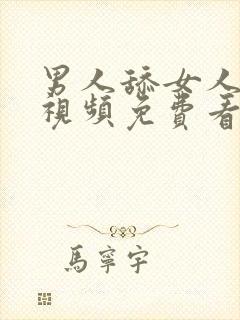 男人舔女人
視頻免費看
馬寧宇